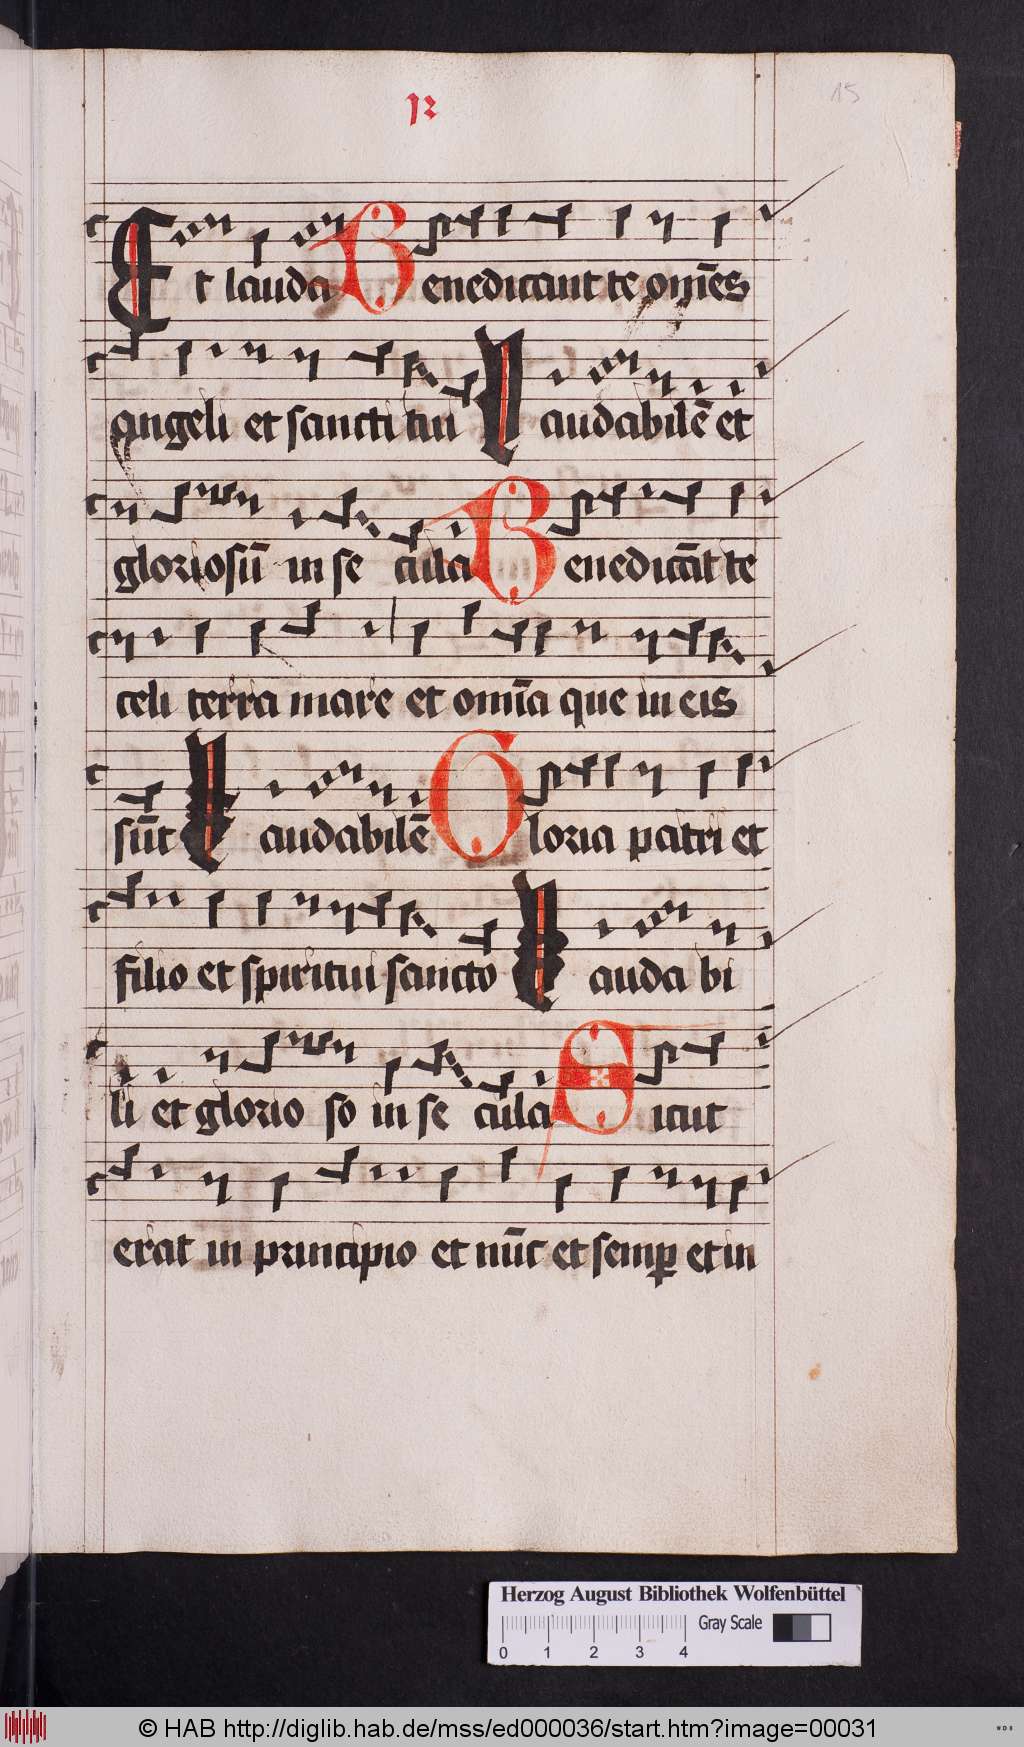 12
15
Et lauda Benedicant te om̄es
angeli et sancti tui Laudabilē et
gloriosū in se cula Benedicāt te
celi terra mare et omīa que in eis
sūt Laudabilē Gloria patri et
filio et spiritui sancto Lauda bi
li et glorio so in se cula Sicut
erat in principio et nūc et semꝑ et in
Herzog August Bibliothek Wolfenbüttel
Gray Scale
0 1 2 3 4
© HAB http://diglib.hab.de/mss/ed000036/start.htm?image=00031